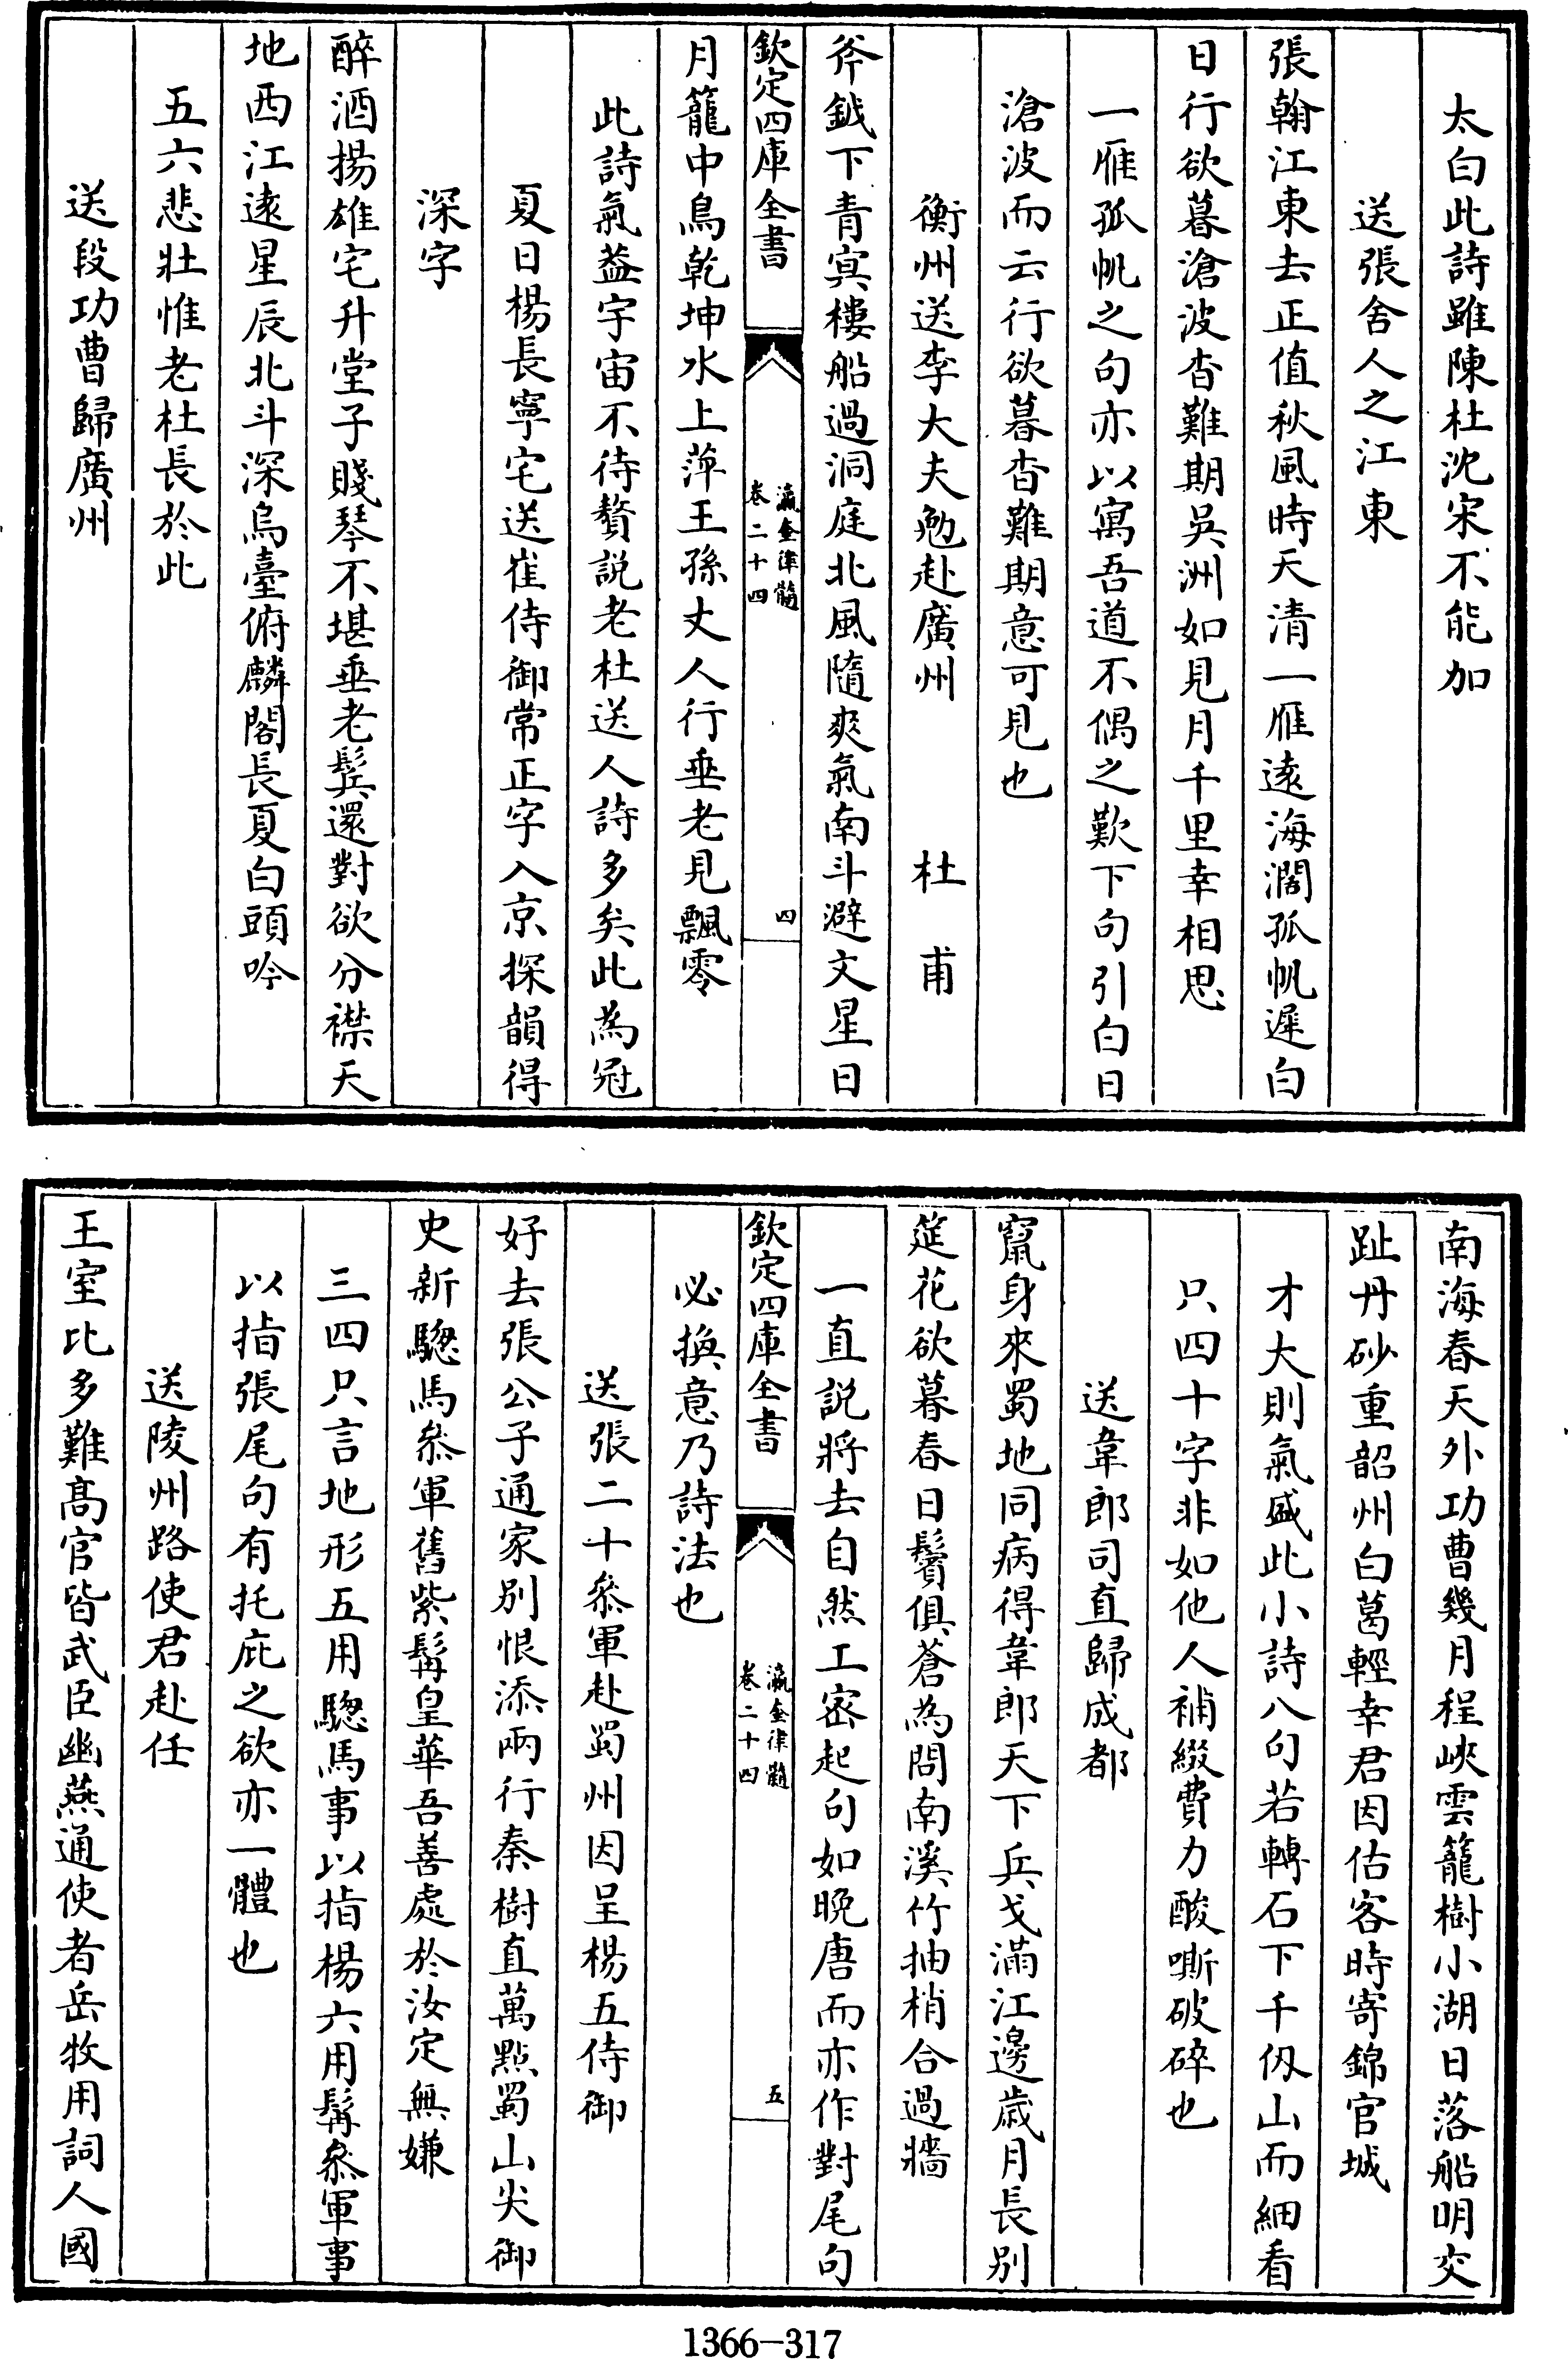 太白此詩雖陳杜沈宋不能加
送張舍人之江東
張翰江東去正值秋風時天清一雁逺海濶孤帆遲白
日行欲暮滄波杳難期吳洲如見月千里幸相思
一雁孤帆之句亦以寓吾道不偶之歎下句引白日
滄波而云行欲暮杳難期意可見也
衡州送李大夫勉赴廣州 杜甫
斧鉞下青冥樓船過洞庭北風隨爽氣南斗避文星日
欽定四庫全書
瀛奎律髓
卷二十四
四
月籠中鳥乾坤水上萍王孫丈人行垂老見飄零
此詩氣葢宇宙不待贅説老杜送人詩多矣此為冠
夏日楊長寧宅送崔侍御常正字入京探韻得
深字
醉酒揚雄宅升堂子賤琴不堪垂老鬂還對欲分襟天
地西江逺星辰北斗深烏臺俯麟閣長夏白頭吟
五六悲壯惟老杜長於此
送段功曹歸廣州
南海春天外功曹幾月程峽雲籠樹小湖日落船明交
趾丹砂重韶州白葛輕幸君因估客時寄錦官城
才大則氣盛此小詩八句若轉石下千仭山而細看
只四十字非如他人補綴費力酸嘶破碎也
送韋郎司直歸成都
竄身來蜀地同病得韋郎天下兵戈滿江邊歲月長別
筵花欲暮春日鬢俱蒼為問南溪竹抽梢合過牆
一直説將去自然工密起句如晚唐而亦作對尾句
欽定四庫全書
瀛奎律髓
卷二十四
五
必換意乃詩法也
送張二十叅軍赴蜀州因呈楊五侍御
好去張公子通家别恨添兩行秦樹直萬點蜀山尖御
史新驄馬叅軍舊紫髯皇華吾善處於汝定無嫌
三四只言地形五用驄馬事以指楊六用髯叅軍事
以指張尾句有托庇之欲亦一體也
送陵州路使君赴任
王室比多難高官皆武臣幽燕通使者岳牧用詞人國
1366-317